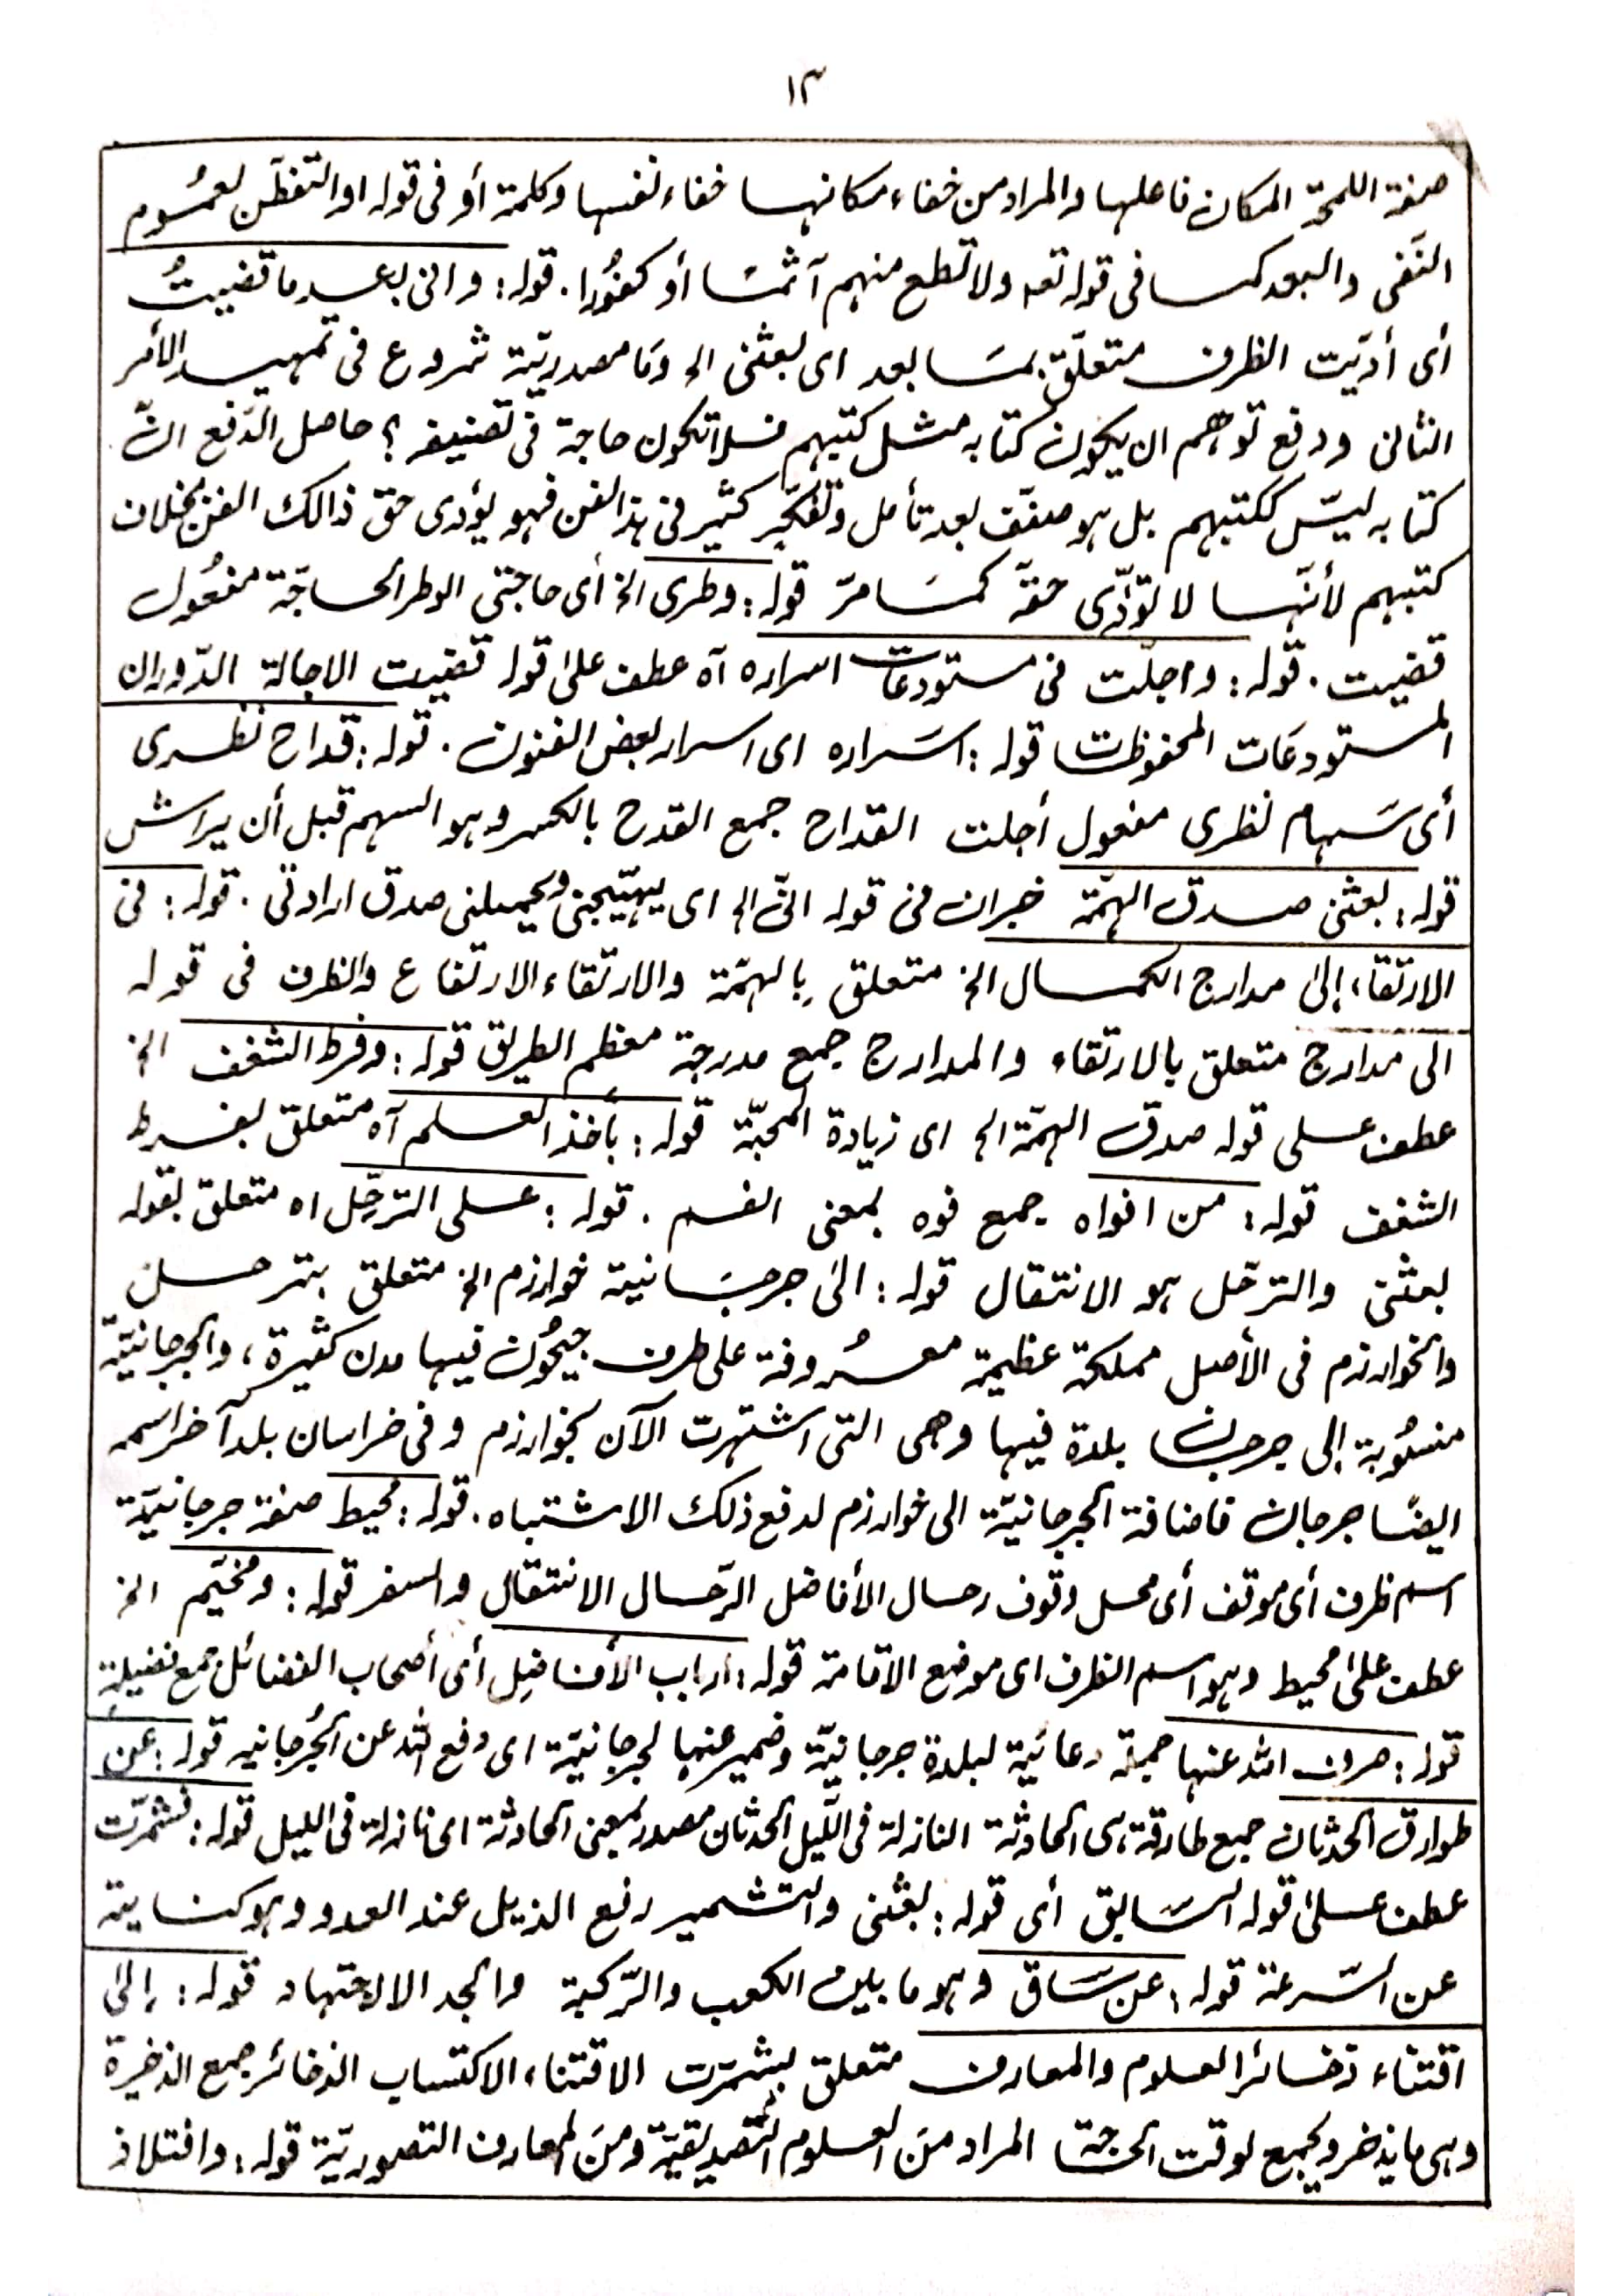 ١٣
صفة اللمحة المكان فاعلها والمراد من خفاء مكانها خفاء نفسها وكلمة أو فى قوله او التفطّن لعمُوم
النّفى والبعد كما فى قوله تعه ولا تطع منهم آثمًا أو كفُورا. قوله: وانى بعد ما قضيتُ
أى أدّيت الظرف متعلّق بمَا بعد اى بعثنى الخ ومَا مصدريّة شروع فى تمهيد الأمر
الثانى ودفع توهم ان يكون كتابه مثل كتبهم فلا تكون حاجة فى تصنيفه ؟ حاصل الدّفع انّ
كتابه ليسَ ككتبهم بل هو مصنّف بعد تأمل وتفكّير كثير فى هذا الفن فهو يؤدى حق ذالك الفن بخلاف
كتبهم لأنّها لا تؤدّى حقّه كمَا مرّ قوله: وطرى الخ أى حاجتى الوطر الحاجّة مفعُول
قضيت. قوله: واجلت فى مستودعات اسراره آه عطف على قوله قضيت الاجالة الدّوران
المستودعَات المحفوظات قوله: اسَراره اى اسرار بعض الفنون. قوله: قداح نظرى
أى سَهام نظرى مفعول أجلت القداح جمع القدح بالكسر وهو السهم قبل أن يراش
قوله: بعثنى صدق الهمّة خبر ان فى قوله انّى الخ اى يهيّجنى ويحملنى صدق ارادتى. قوله: فى
الارتقاء إلى مدارج الكمال الخ متعلق بالهمّة والارتقاء الارتفاع والظرف فى قوله
الى مدارج متعلق بالارتقاء والمدارج جمع مدرجة معظم الطريق قوله: وفرط الشغف الخ
عطف على قوله صدق الهمّة الخ اى زيادة المحبّة قوله: بأخذ العلم آه متعلق بفرط
الشغف قوله: من افواه جمع فوه بمعنى الفم. قوله: على الترحّل اه متعلق بقوله
بعثنى والترحّل هو الانتقال قوله: الى جرجَانية خوارزم الخ متعلق بترحل
والخوارزم فى الأصل مملكة عظيمة معرُوفة على طرف جيحُون فيها مدن كثيرة، والجرجانيّة
منسُوبة إلى جرجان بلدة فيها وهى التى اشتهرت الآن بخوارزم وفى خراسان بلد آخر اسمه
ايضًا جرجان فاضافة الجرجانيّة الى خوارزم لدفع ذلك الاشتباه. قوله: محيط صفة جرجانيّة
اسم ظرف أى موقف أى محل وقوف رحال الأفاضل الرّحال الانتقال والسفر قوله: ومخيّم الخ
عطف على محيط وهو اسم الظرف اى موضع الاقامة قوله: ارباب الأفاضِل أى أصحاب الفضائل جمع فضيلة
قوله: صرف الله عنها جملة دعائية لبلدة جرجانيّة وضمير عنها لجرجانيّة اى دفع الله عن الجُرجانيه قوله: عن
طوارق الحدثان جمع طارقة، هى الحادثة النازلة فى اللّيل الحدثان مصدر بمعنى الحادثة اى نازلة فى الليل قوله: فشمّرت
عطف على قوله السّابق أى قوله: بعثنى والتشمير رفع الذيل عند العدو وهو كناية
عن السّرعة قوله: عن سَاق وهو ما بين الكعب والرّكبة والجد الالاجتهاد قوله: إلى
اقتناء ذخائر العلوم والمعارف متعلق بشمّرت الاقتناء الاكتساب الذخائر جمع الذخيرة
وهى ما يذخر ويجمع لوقت الحاجة المراد منَ العلوم التصديقيّة ومنَ المعارف التصوريّة قوله: وافتلاذ